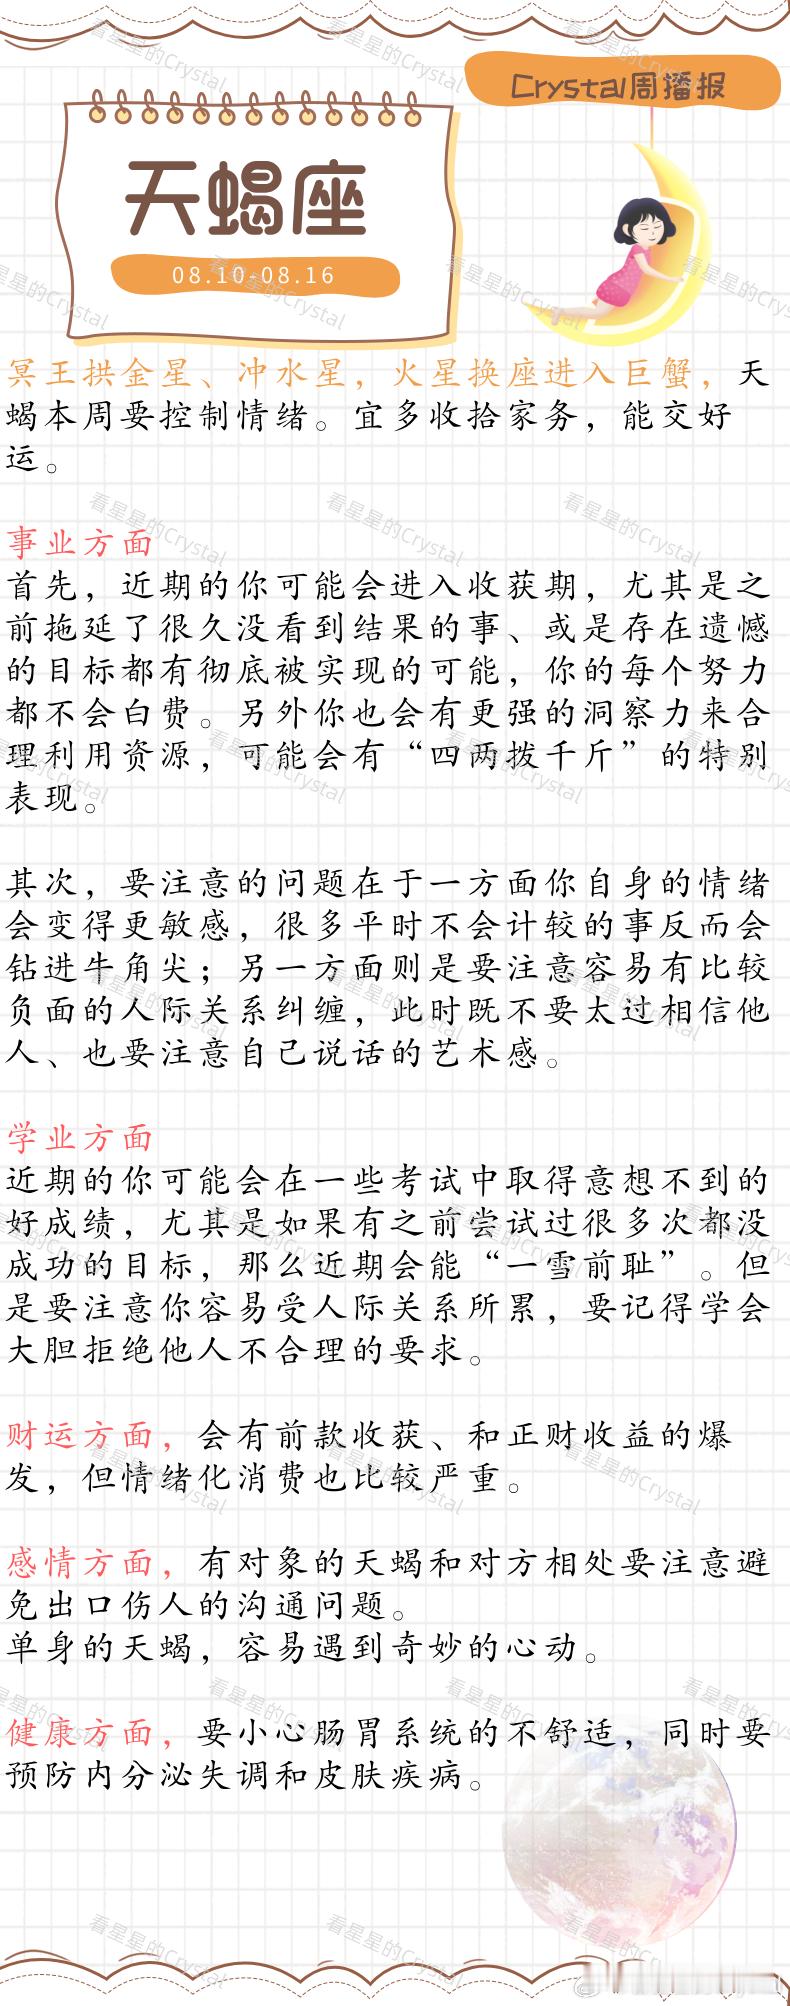 Crystal周播报
天蝎座
08.10-08.16
冥王拱金星、冲水星，火星换座进入巨蟹，天
蝎本周要控制情绪。宜多收拾家务，能交好
运。
事业方面
首先，近期的你可能会进入收获期，尤其是之
前拖延了很久没看到结果的事、或是存在遗憾
的目标都有彻底被实现的可能，你的每个努力
都不会白费。另外你也会有更强的洞察力来合
理利用资源，可能会有“四两拨千斤”的特别
表现。
其次，要注意的问题在于一方面你自身的情绪
会变得更敏感，很多平时不会计较的事反而会
钻进牛角尖；另一方面则是要注意容易有比较
负面的人际关系纠缠，此时既不要太过相信他
人、也要注意自己说话的艺术感。
学业方面
近期的你可能会在一些考试中取得意想不到的
好成绩，尤其是如果有之前尝试过很多次都没
成功的目标，那么近期会能“一雪前耻”。但
是要注意你容易受人际关系所累，要记得学会
大胆拒绝他人不合理的要求。
财运方面，会有前款收获、和正财收益的爆
发，但情绪化消费也比较严重。
感情方面，有对象的天蝎和对方相处要注意避
免出口伤人的沟通问题。
单身的天蝎，容易遇到奇妙的心动。
健康方面，要小心肠胃系统的不舒适，同时要
预防内分泌失调和皮肤疾病。
看星星的Crystal